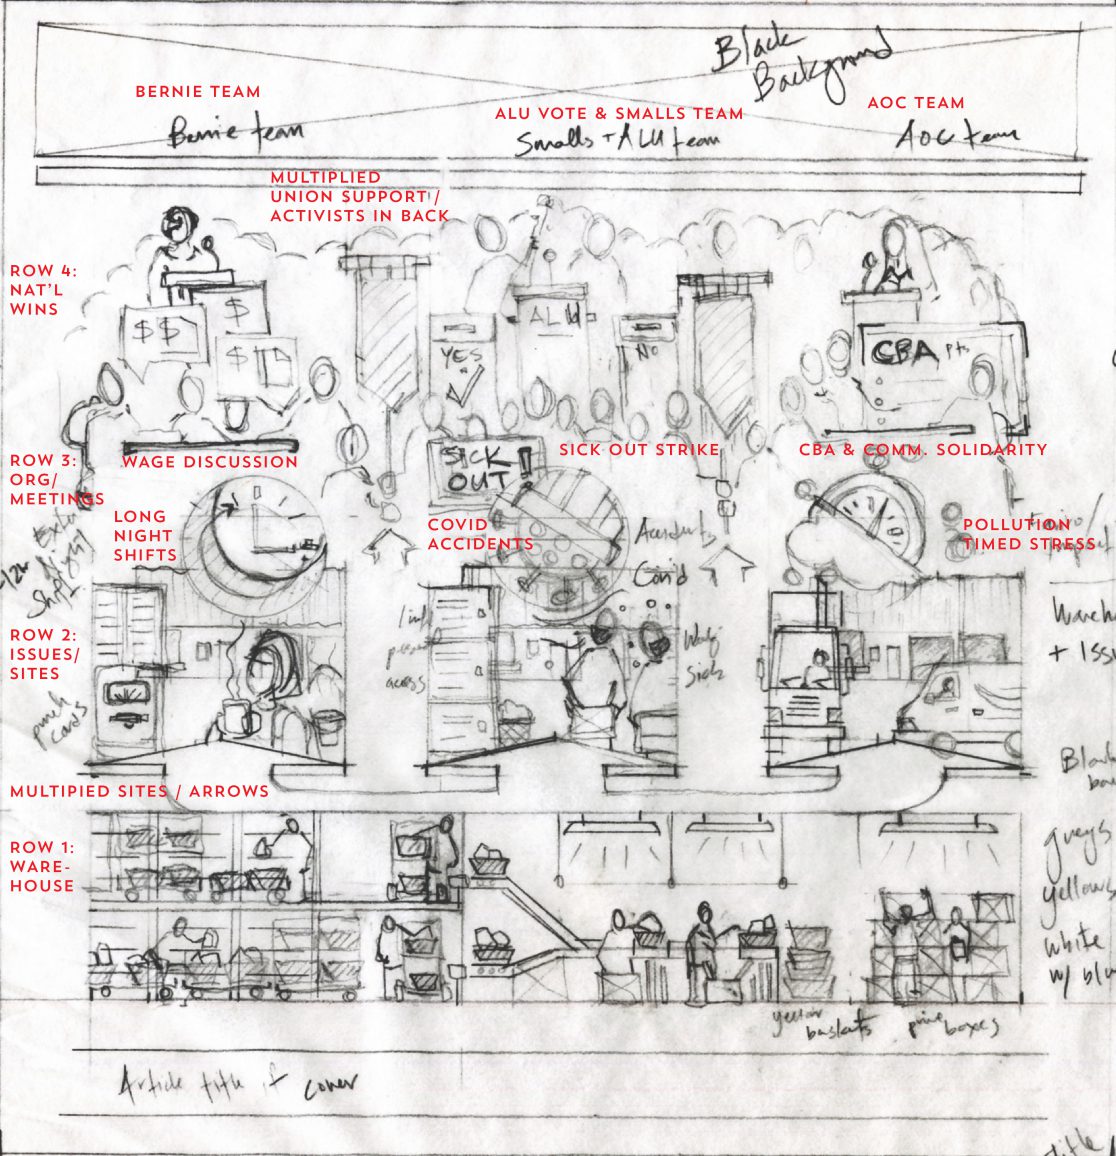 Black
Background
BERNIE TEAM
ALU VOTE & SMALLS TEAM
AOC TEAM
Bernie team
Smalls + ALU team
AOC team
MULTIPLIED
UNION SUPPORT /
ACTIVISTS IN BACK
ROW 4:
NAT'L
WINS
$$
$
$
ALU
YES
NO
CBA Pts
ROW 3:
ORG/
MEETINGS
WAGE DISCUSSION
SICK
OUT!
SICK OUT STRIKE
CBA & COMM. SOLIDARITY
LONG
NIGHT
SHIFTS
COVID
ACCIDENTS
Accidents
Covid
POLLUTION
TIMED STRESS
ROW 2:
ISSUES/
SITES
punch
cards
+ Issu
MULTIPIED SITES / ARROWS
ROW 1:
WARE-
HOUSE
greys
yellows
white
w/ blu
yellow
baskets
prime
boxes
Article title if cover
title